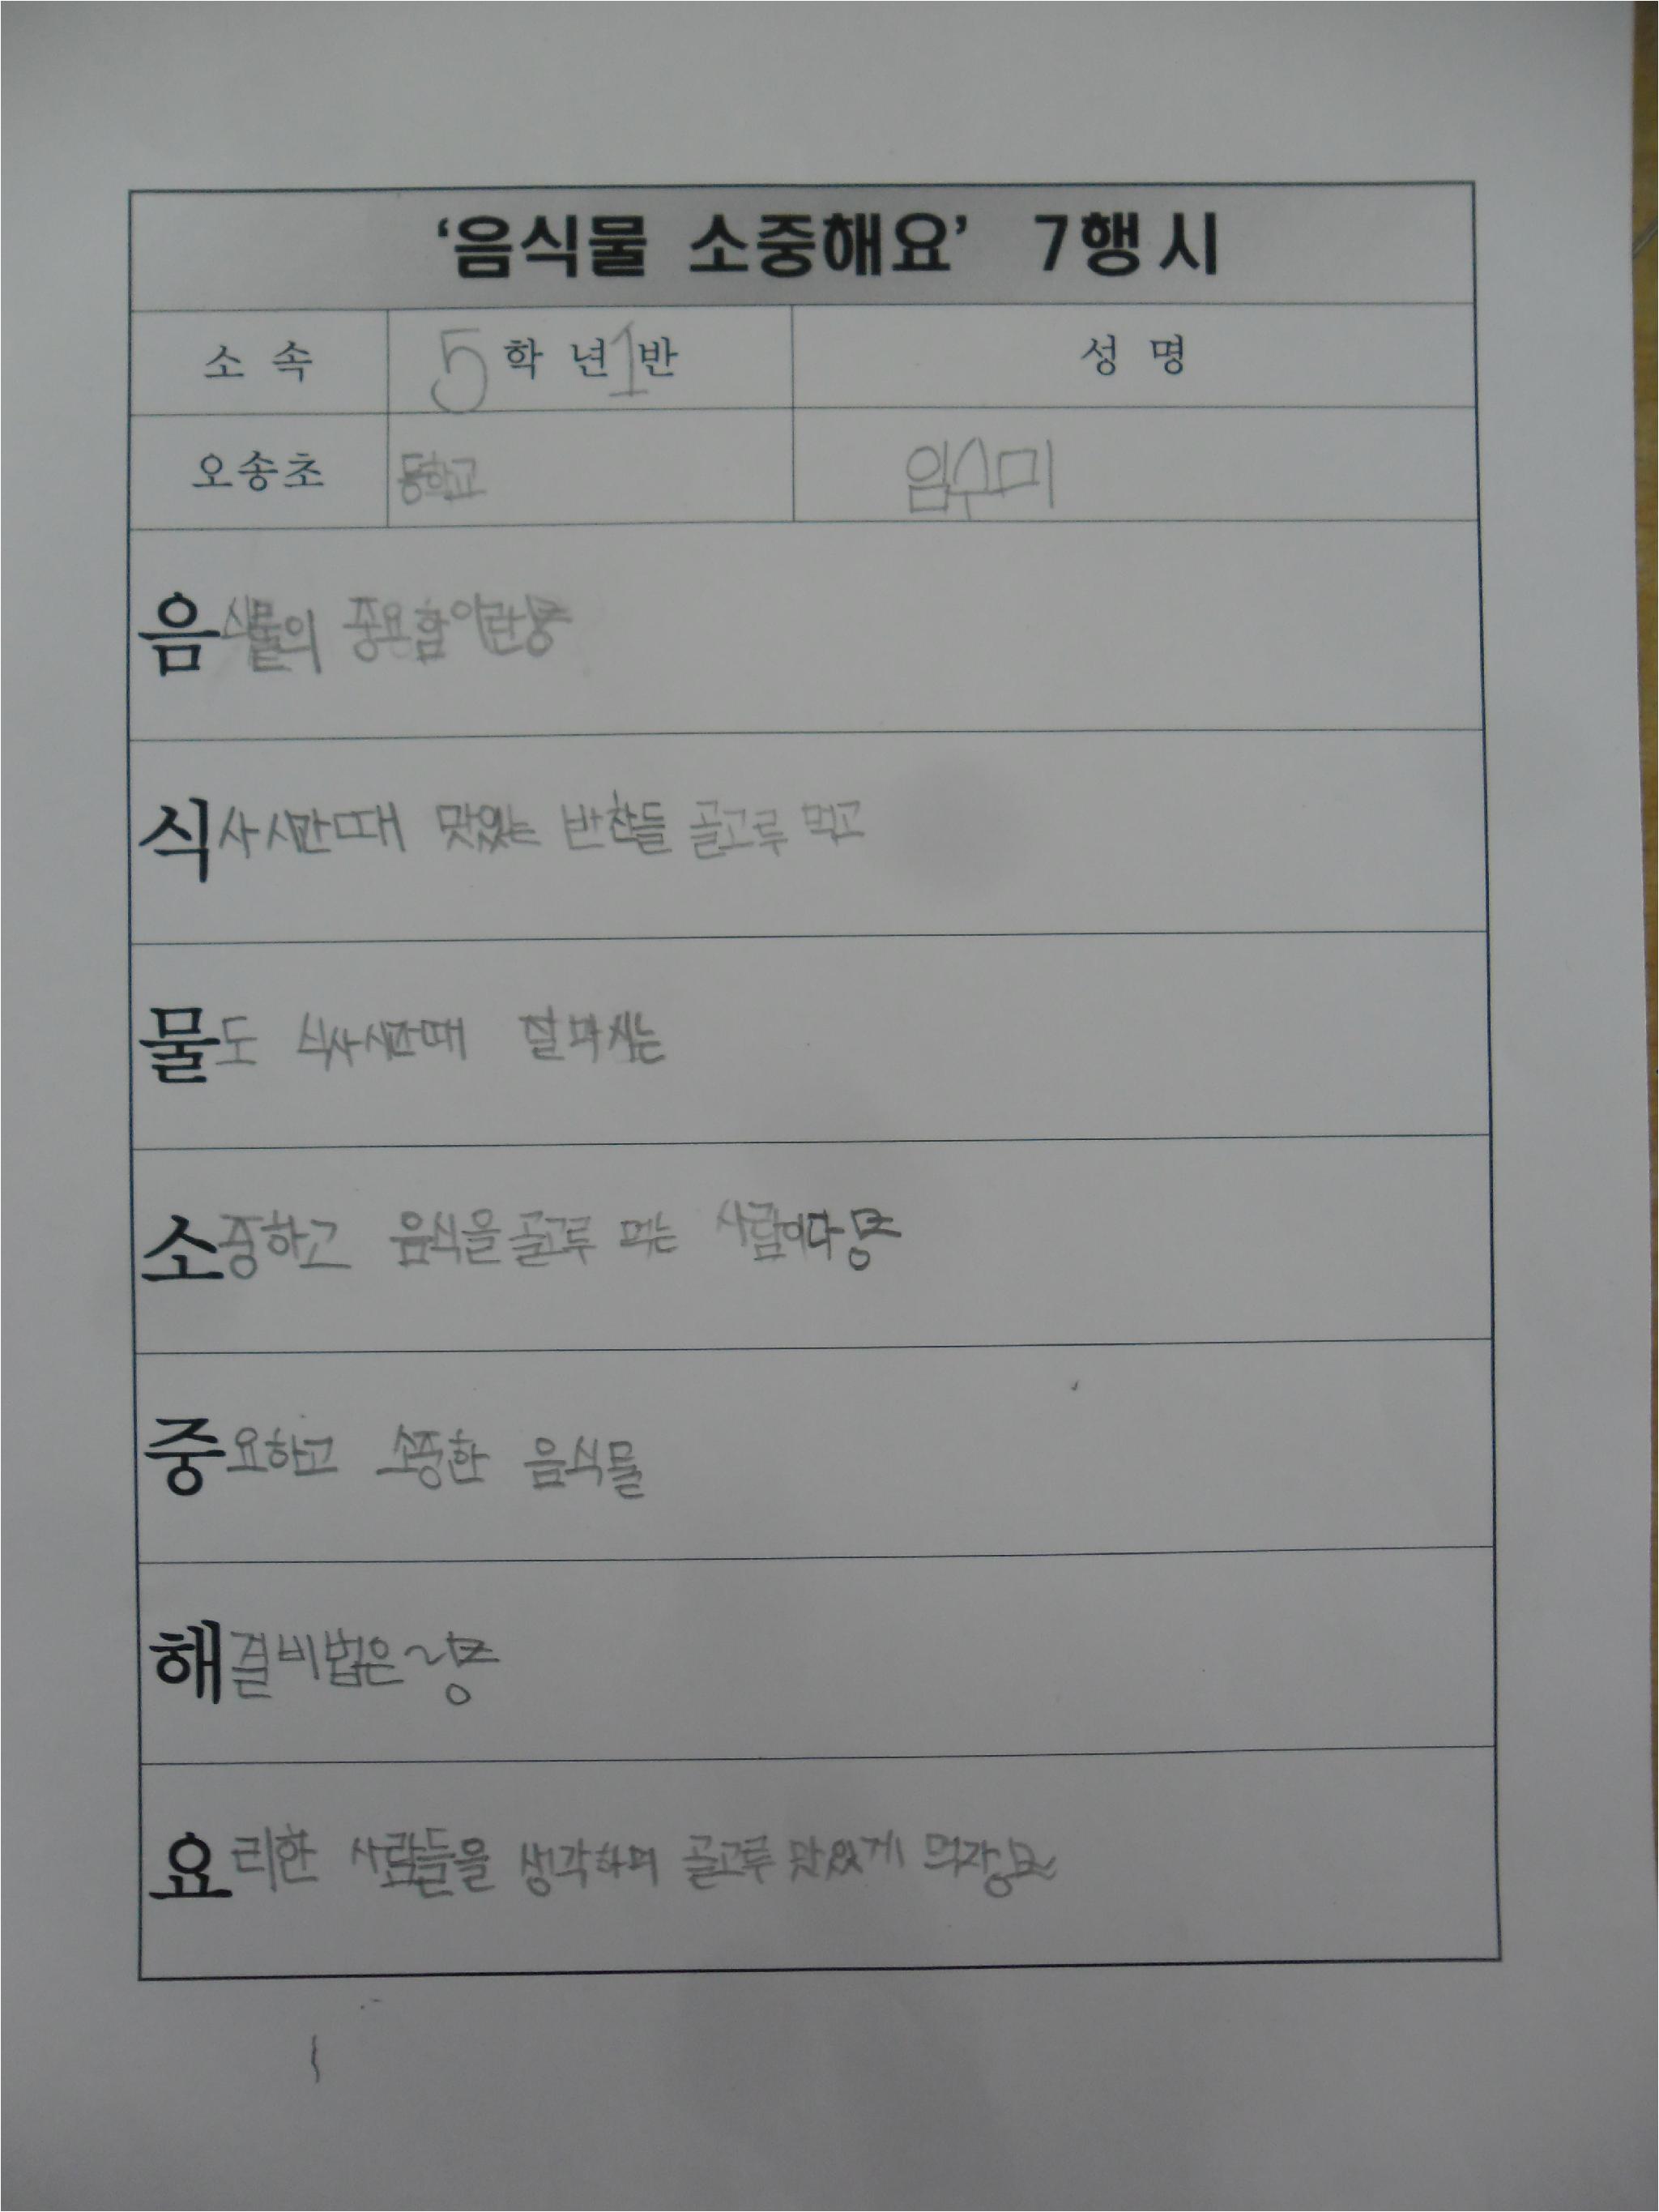 ‘음식물 소중해요’ 7행시
소 속 5학 년 1반 성 명
오송초 등학교 임수미
음식물의 중요함이란
식사시간때 맛있는 반찬들 골고루 먹고
물도 식사시간때 잘 마시는
소중하고 음식을 골고루 먹는 사람이다
중요하고 소중한 음식물
해결비법은~
요리한 사람들을 생각하며 골고루 맛있게 먹자